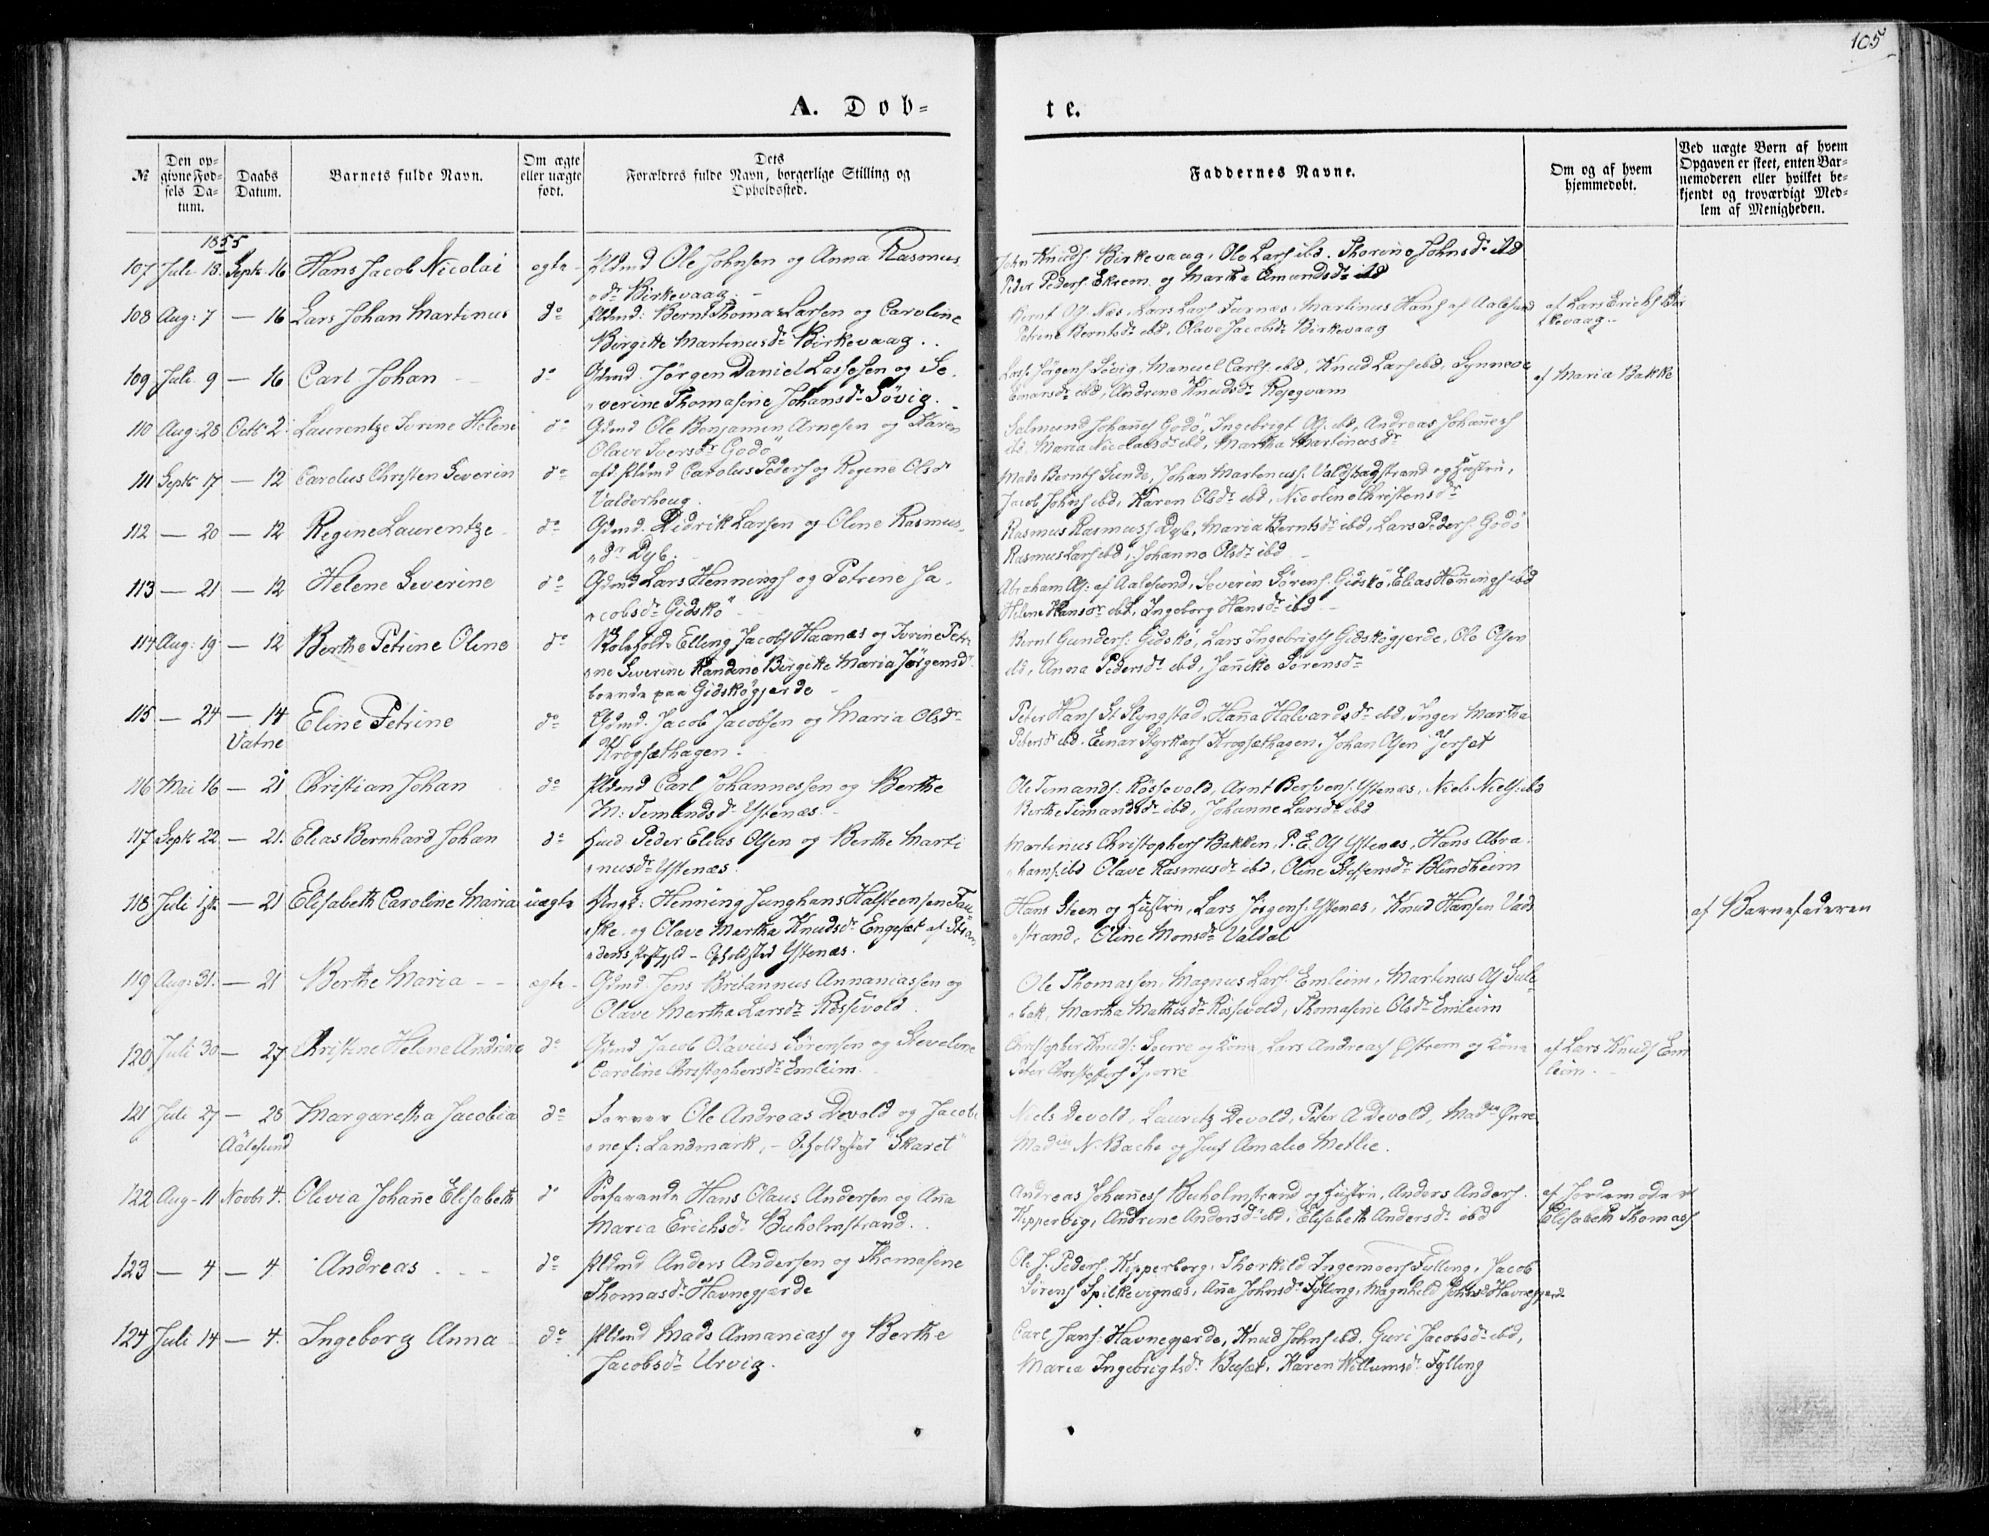 105
A. Døb-
te.
№
Den op-
givne Fød-
sels Da-
tum.
Daabs
Datum.
Barnets fulde Navn.
Om ægte
eller uægte
født.
Dets
Forældres fulde Navn, borgerlige Stilling og
Opholdssted.
Faddernes Navne.
Om og af hvem
hjemmedøbt.
Ved uægte Børn af hvem
Opgaven er skeet, enten Bar-
nemoderen eller hvilket be-
kjendt og troværdigt Med-
lem af Menigheden.
1855
107 Juli 18. Septr 16 Hans Jacob Nicolai ægte Ole Johnsen og Anna Rasmus
dr Birkevaag.
John Knuds. Birkevaag, Ole Lars ibd. Thorine Johnsdr ibd
Peder Peders. Ekrem og Martha Amundsdr ibd
108 Aug: 7 — 16 Lars Johan Martinus do Bernt Thomas Larsen og Caroline
Birgitte Martinusdr Birkevaag.
Bernt Ols Næs, Lars Lars Furnæs, Martinus Hans af Aalesund
Petrine Berntsdr ibd, Olave Jacobsdr Birkevaag
af Lars Erichs Bir
kevaag
109 Juli 9 — 16 Carl Johan do Gdmd. Jørgen Daniel Lassesen og Se-
verine Thomasine Johansdr Søvig.
Lasse Jørgens Søvig, Manuel Carls ibd, Knud Lars ibd, Synneve
Einarsdr ibd, Andrine Knudsdr
af Maria Bakke
110 Aug: 28 Octbr 2 Laurentze Ivrine Helene do Gdmd Ole Benjamin Arnesen og Karen
Olave Iversdr Godö
Salmund Johannes Godö, Ingebrigt Ols ibd, Andreas Johannes
ibd, Maria Nicolaisdr ibd, Martha Martinusdr
111 Septr 17 — 12 Carolus Christen Severin do Carolus Peders og Regine Olsdr
Valderhoug.
Mads Bernts Gunde, Johan Martinuss. Valdstadstrand og Hustru,
Jacob Johns ibd, Karen Olsdr ibd, Nicoline Christensdr
112 — 20 — 12 Regine Laurentze do Gdmd. Didrik Larsen og Oline Rasmus-
dr Dyb.
Rasmus Rasmuss Dyb, Maria Berntsdr ibd, Lars Peders Godö
Rasmus Lars ibd, Johanne Olsdr ibd
113 — 21 — 12 Helene Severine do Gdmd Lars Hennings og Petrine Ja-
cobsdr Gidskö
Abraham Ols: af Aalesund, Severin Sørens. Gidskö, Elias Hennings ibd
Helene Hansdr ibd, Ingeborg Hansdr ibd
114 Aug: 19 — 12 Berthe Petrine Oline do Elling Jacobs Haanæs og Ivrine Petri-
ne Severine Birgitte Maria Jørgensdr
boende paa Gidskögjerde
Bernt Gunders: Gidskö, Lars Ingebrigts Gidskögjerde, Ole Olsen
ibd, Anna Pedersdr ibd, Jannike Sørensdr
115 — 24 — 14 Eline Petrine do Gdmd. Jacob Jacobsen og Maria Olsdr
Vatne Krogsæthagen.
Peter Hans St Slyngstad, Hanna Halvardsdr ibd, Inger Martha
Petersdr ibd. Einar Styrkars Krogsæthagen, Johan Olsen
116 Mai 16 — 21 Christian Johan do Carl Johannessen og Berthe
M: Temandsdr Ystenæs.
Ole Temands. Rössevold, Arnt Bersvens. Ystenæs, Niels Niels. ibd
Berthe Temandsdr ibd, Johanne Larsdr ibd
117 Septr 22 — 21. Elias Bernhard Johan do Peder Elias Olsen og Berthe Marti
nusdr Ystenæs.
Martinus Christophers Bakken, P. E. Ols Ystenæs, Hans Abra-
hams. ibd Olave Rasmusdr ibd, Oline Steffensdr Blindheim
118 Juli — 21 Elisabeth Caroline Maria uægte Ungk: Henning Junghans Halsteensen Tau-
ske og Olave Martha Knudsdr Engeset af Stran
dens - Opholdsted Ystenæs.
Hans Steen og Hustru, Lars Jørgens. Ystenæs, Knud Hansen Vads
strand, Oline Monsdr Valdal
af Barnefaderen
119 Aug: 31. — 21 Berthe Maria ægte Gdmd. Jens Britannus Annaniassen og
Olave Martha Larsdr Røssevold.
Ole Thomassen, Magnus Lars Emleim, Martinus Ols Sule-
bak, Martha Mathisdr Røssevold, Thomasine Olsdr Emleim
120 Juli 30 — 27 Christine Helene Andrine do Gdmd Jacob Olavius Sørensen og Sevelene
Caroline Christophersdr Emleim.
Christopher Knuds. Sperre og Kone, Lars Andreass Östrem og Kone
Peter Christoffers Sperre
af Lars Knuds Em
leim.
121 Juli 27 — 28 Margaretha Jacobia do Farver Ole Andreas Devold og Jacobi-
Aalesund ne f: Landmark, — Opholdsted "Skaret"
Niels Devold, Lauritz Devold, Peter A Devold, Madm Øvre
Madm N. Bache og Jmf Amalie Metlie.
122 Aug 11 Novbr 4. Olivia Johanne Elisabeth do Hans Olaus Andersen og Ana
Maria Erichsdr Buholmstrand.
Andreas Johannes Buholmstrand og Hustru, Anders Anders.
Kipperbeg, Andrine Andersdr ibd, Elisabeth Andersdr ibd
af Jordemoder
Elisabeth Thomass
123 — 4 — 4 Andreas do Anders Andersen og Thomasine
Thomasdr Havnegjærde
Ole J. Peders Kipperberg, Thorkild Ingemoers Fylling, Jacob
Sørens Spilkevignæs, Ana Johnsdr Fylling, Magnhild Johnsdr Havnegjerde
124 Juli 14 — 4. Ingeborg Anna do Mads Annaniass og Berthe
Jacobsdr Urvig.
Carl Jons: Havnegjerde, Knud Johns ibd, Guri Jacobsdr ibd,
Maria Ingebrigtsdr Buset, Karen Willumsdr Fylling